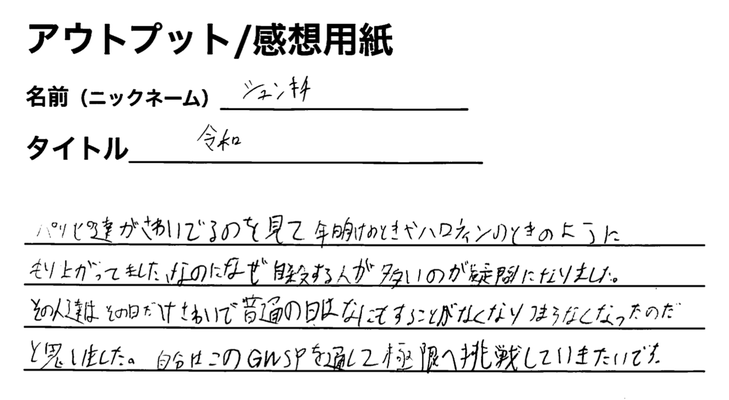 アウトプット/感想用紙
名前（ニックネーム） ジュン科
タイトル 令和
パリピ達がさわいでるのを見て年明けのときやハロウィンのときのように
もり上がってました。なのになぜ自殺する人が多いのが疑問になりました。
その人達はその日だけさわいで普通の日はなにもすることがなくなりつまらなくなったのだ
と思いました。自分はこのGWSPを通して極限へ挑戦していきたいです